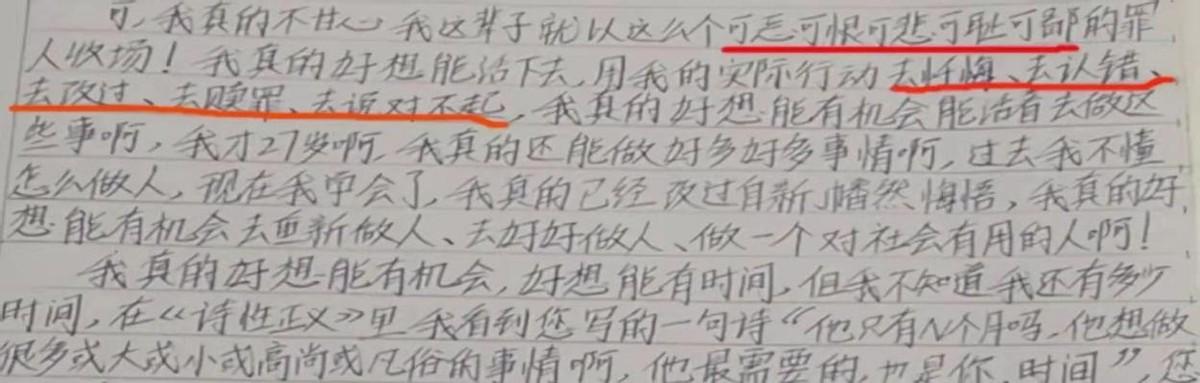 可,我真的不甘心我这辈子就以这么个可恶可恨可悲可耻可鄙的罪
人收场！我真的好想能活下去,用我的实际行动去忏悔、去认错、
去改过、去赎罪、去说对不起,我真的好想能有机会能活着去做这
些事啊,我才27岁啊,我真的还能做好多好多事情啊,过去我不懂
怎么做人,现在我学会了,我真的已经改过自新幡然悔悟,我真的好
想能有机会去重新做人、去好好做人、做一个对社会有用的人啊！
我真的好想能有机会,好想能有时间,但我不知道我还有多少
时间,在《诗性正义》里我看到您写的一句诗“他只有N个月吗,他想做
很多或大或小或高尚或凡俗的事情啊,他最需要的,也是你,时间”,您